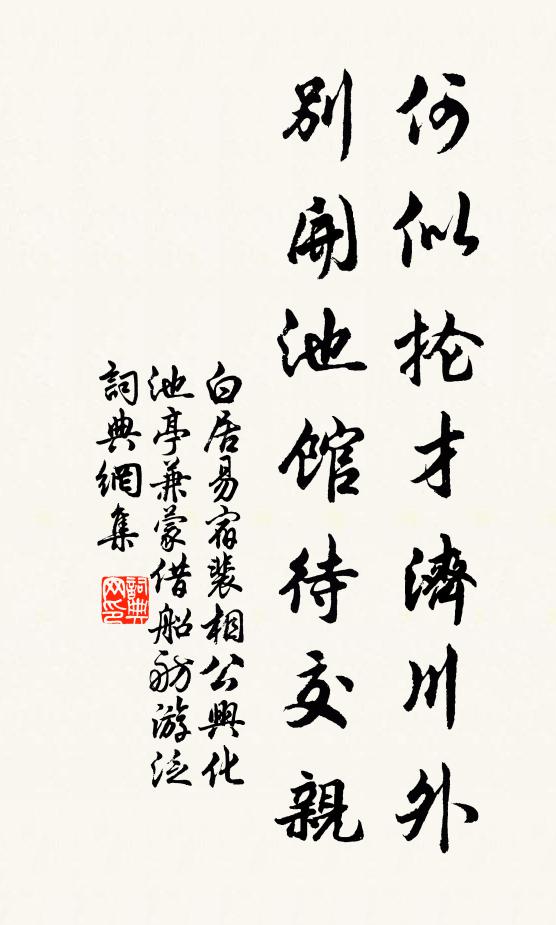 何似抡才濟川外
別開池館待交親
白居易宿裴相公興化
池亭兼蒙借船舫游泛
詞典網集
詞典
网印